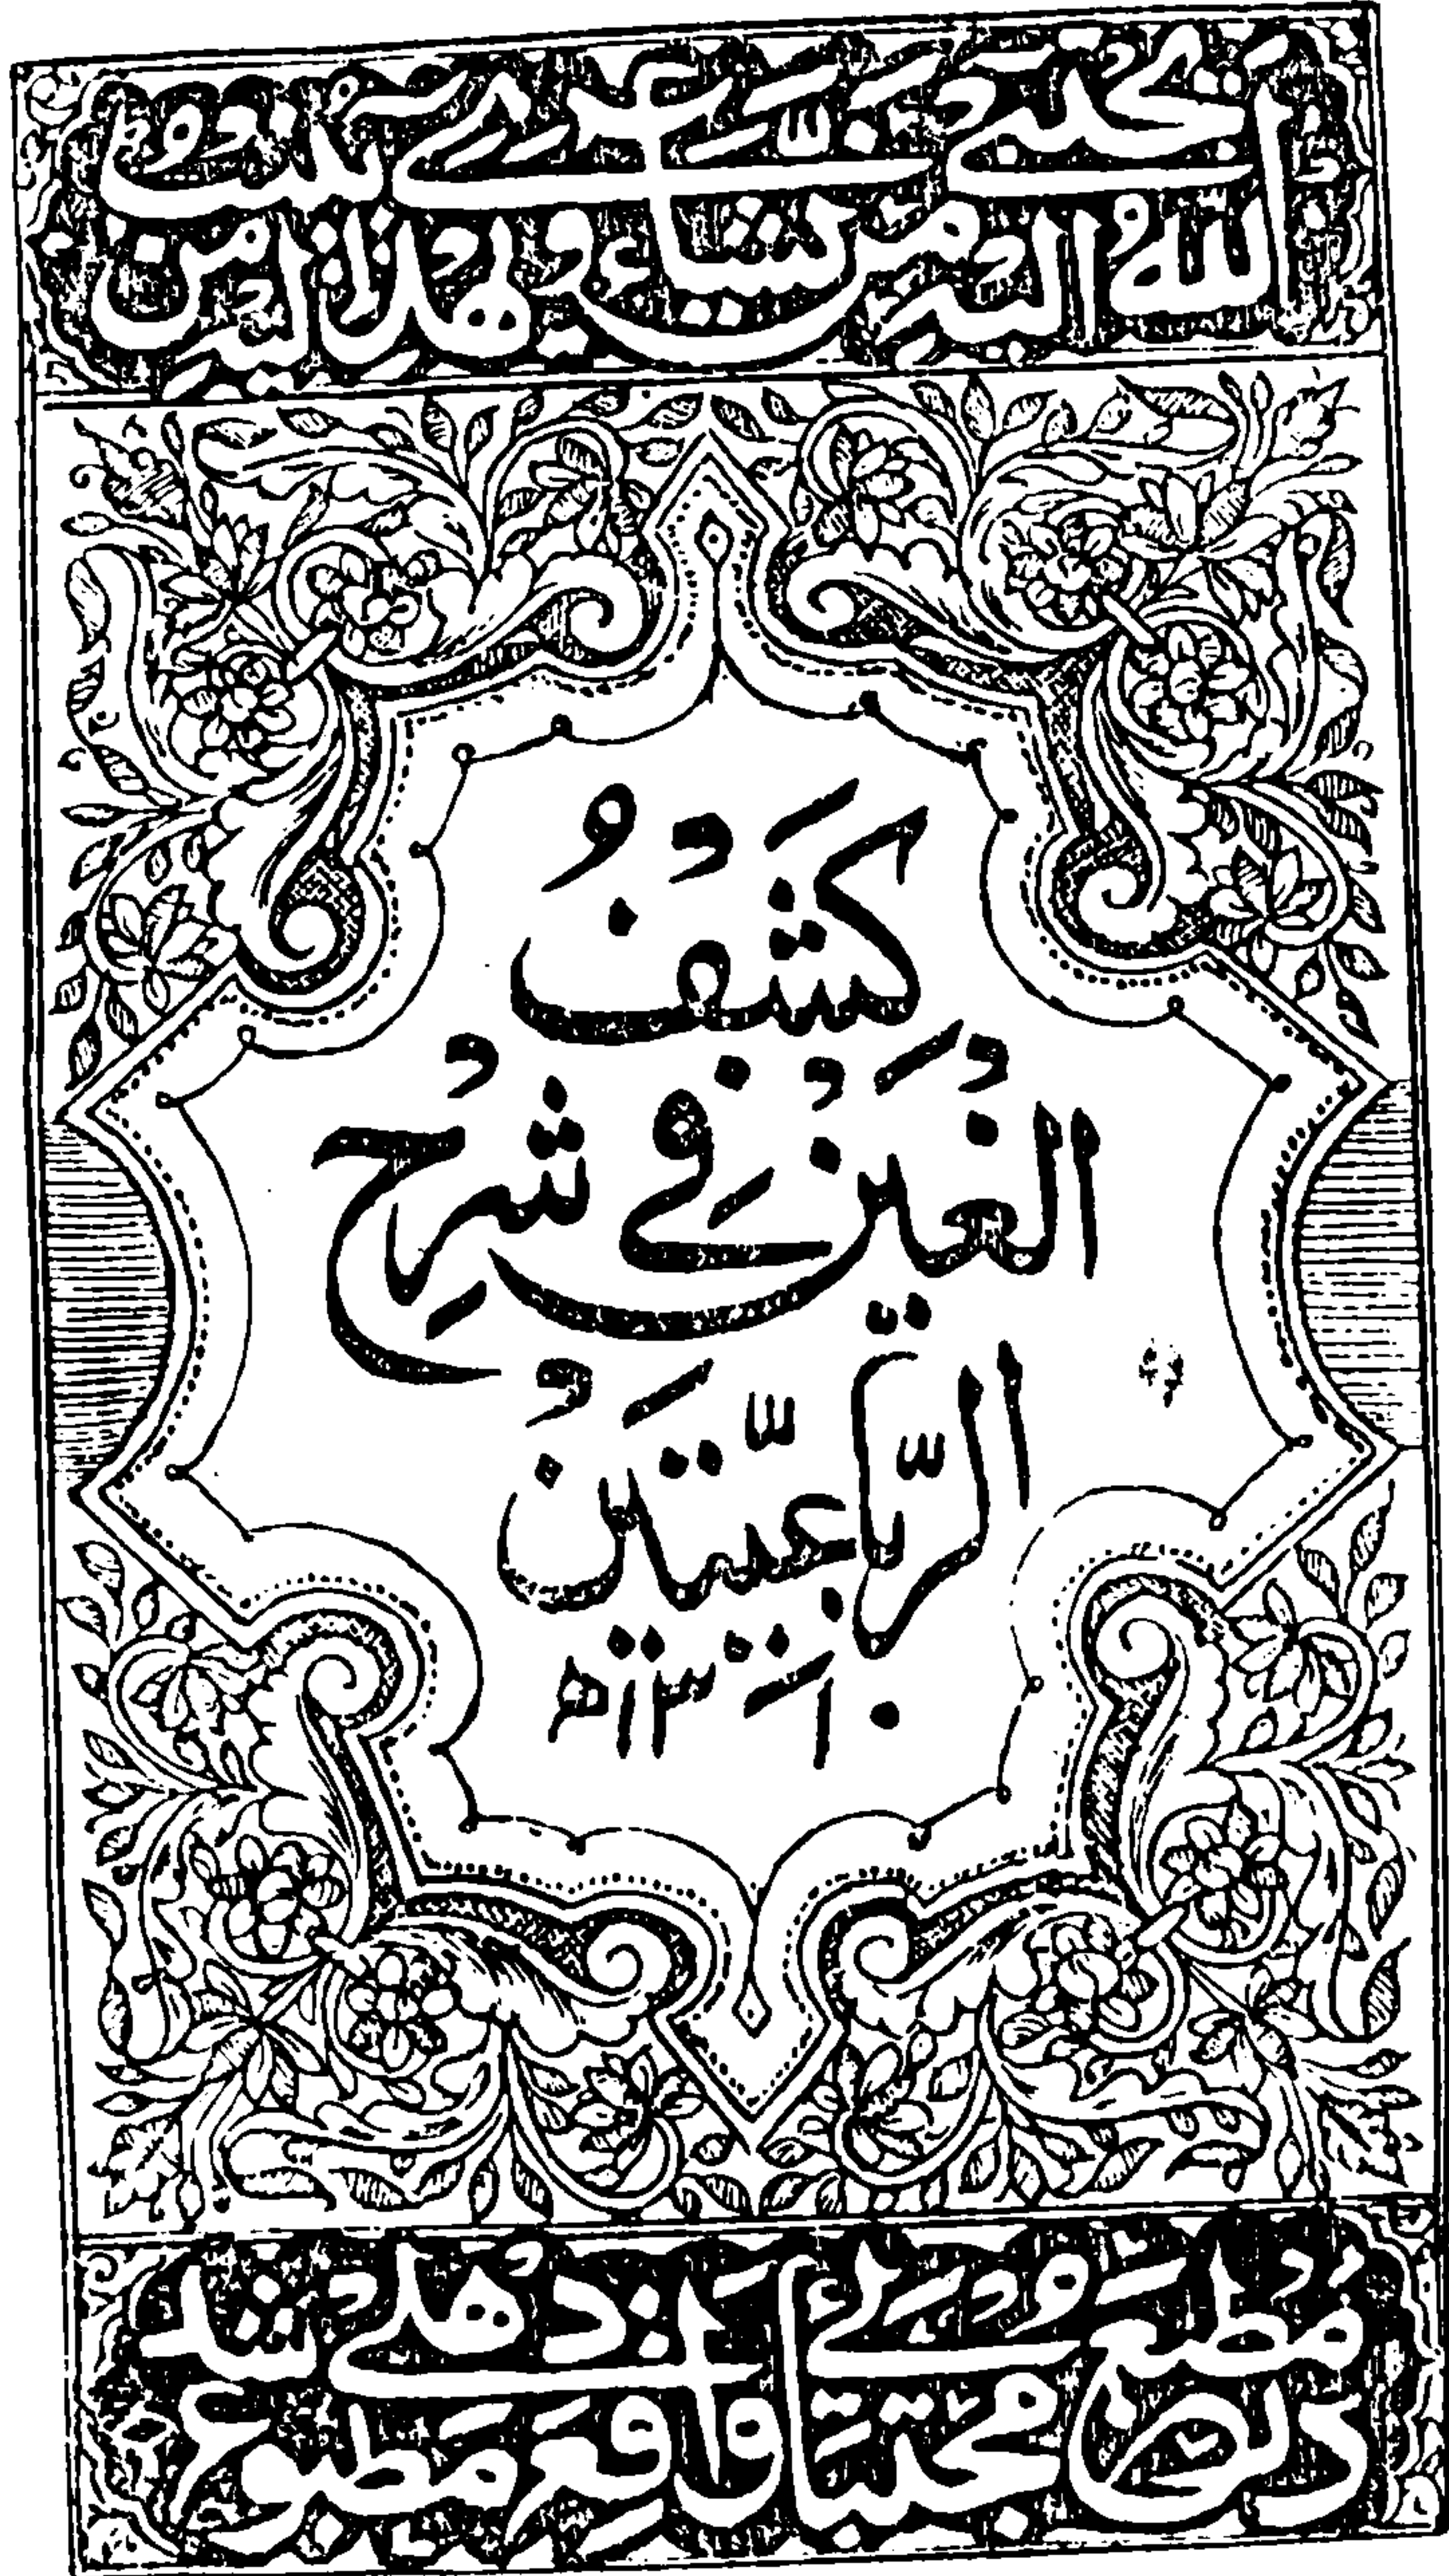 الله يجتبي اليه من يشاء ويهدي اليه من ينيب
كَشْفُ
الغَيْنِ فِي شَرْحِ
الرُّبَاعِيَّتَيْنِ
در مطبع مجتبائی واقع دهلی مطبوع شد